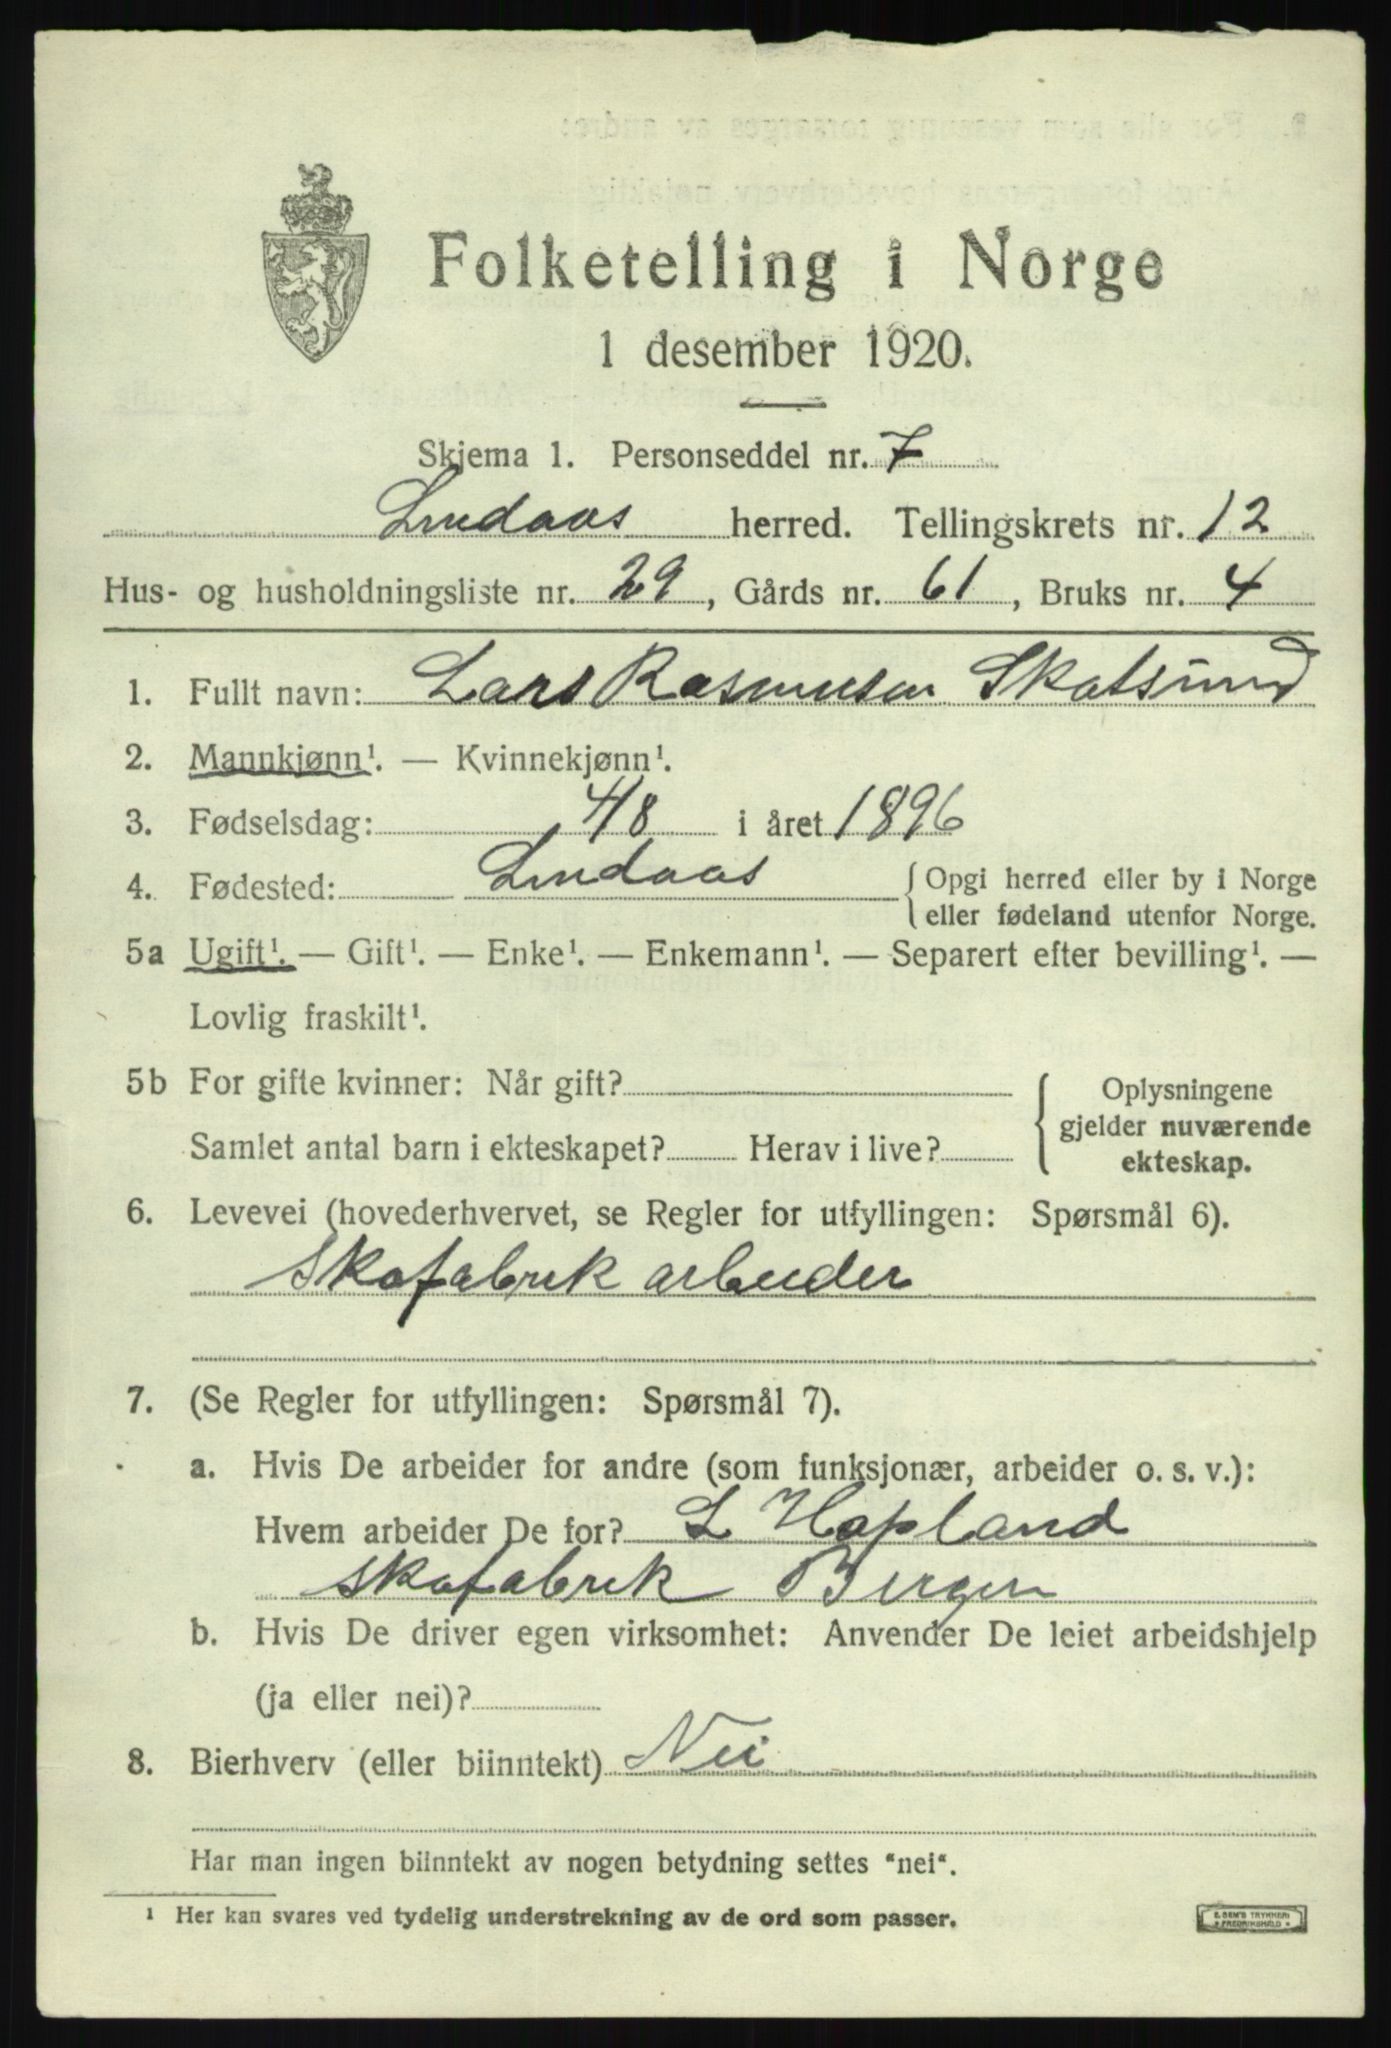 Folketelling i Norge
1 desember 1920.
Skjema 1. Personseddel nr. 7
Lindaas herred. Tellingskrets nr. 12
Hus- og husholdningsliste nr. 29, Gårds nr. 61, Bruks nr. 4
1. Fullt navn: Lars Rasmusen Skatsund
2. Mannkjønn¹. — Kvinnekjønn¹.
3. Fødselsdag: 4/8 i året 1896
4. Fødested: Lindaas { Opgi herred eller by i Norge
eller fødeland utenfor Norge.
5a Ugift¹. — Gift¹. — Enke¹. — Enkemann¹. — Separert efter bevilling¹. —
Lovlig fraskilt¹.
5b For gifte kvinner: Når gift?
Samlet antal barn i ekteskapet? Herav i live?
{ Oplysningene
gjelder nuværende
ekteskap.
6. Levevei (hovederhvervet, se Regler for utfyllingen: Spørsmål 6).
Skofabrik arbeider
7. (Se Regler for utfyllingen: Spørsmål 7).
a. Hvis De arbeider for andre (som funksjonær, arbeider o. s. v.):
Hvem arbeider De for? L Hopland
skofabrik Bergen
b. Hvis De driver egen virksomhet: Anvender De leiet arbeidshjelp
(ja eller nei)?
8. Bierhverv (eller biinntekt) Nei
Har man ingen biinntekt av nogen betydning settes "nei".
¹ Her kan svares ved tydelig understrekning av de ord som passer.
E. SEM'S TRYKKERI
FREDRIKSHALD